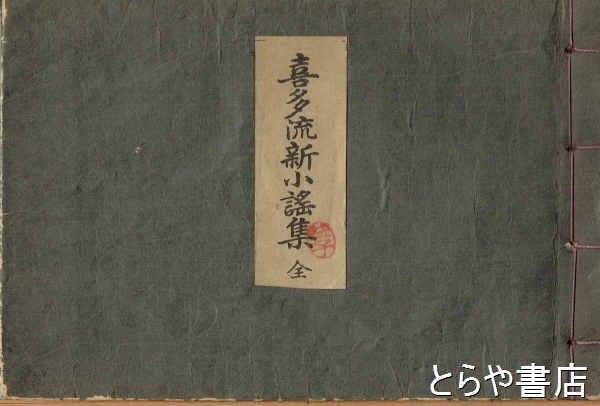 喜多流新小謡集 全
金子
とらや書店